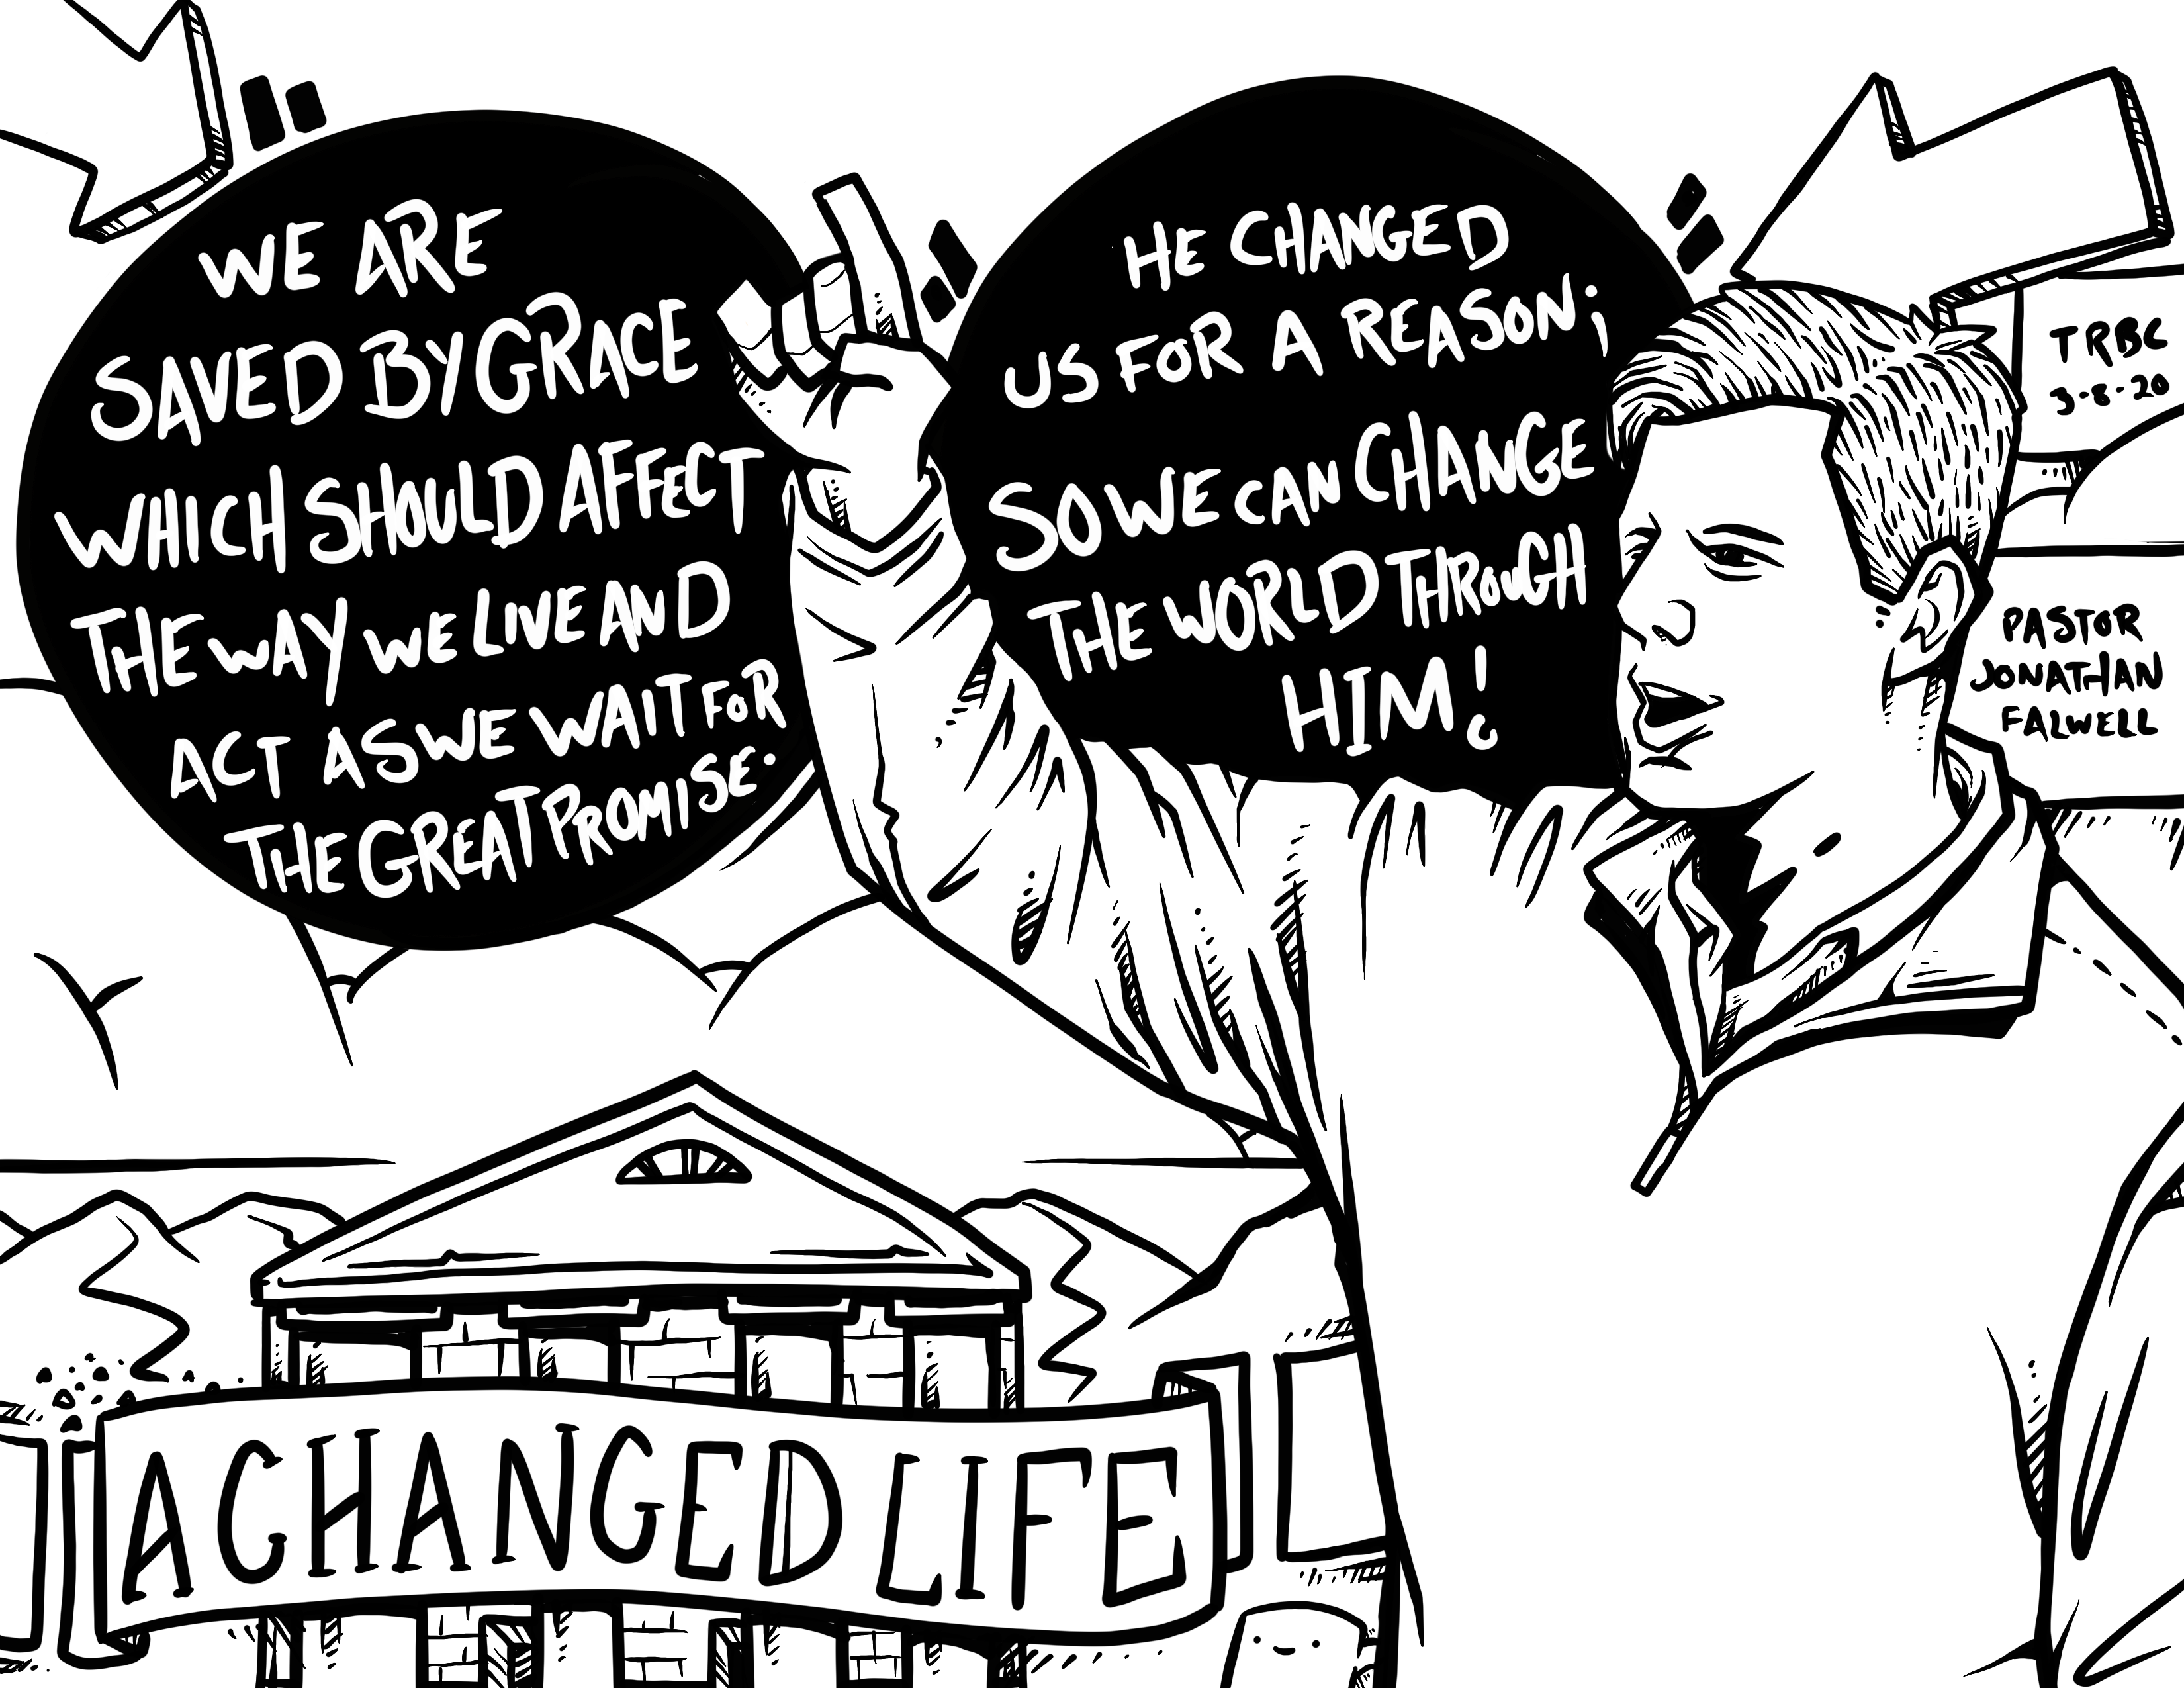 WE ARE
SAVED BY GRACE
WHICH SHOULD AFFECT
THE WAY WE LIVE AND
ACT AS WE WAIT FOR
THE GREAT PROMISE.
HE CHANGED
US FOR A REASON;
SO WE CAN CHANGE
THE WORLD THROUGH
HIM!
TRBC
3-8-20
PASTOR
JONATHAN
FALWELL
A CHANGED LIFE